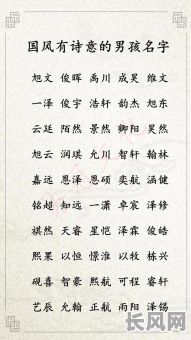 国风有诗意的男孩名字
旭文 俊晖 禹川 成昊 维文
一泽 俊宇 浩轩 韵杰 旭东
云廷 陌然 景然 卿阳 昊然
旭云 润琪 允川 智轩 翰林
嘉远 恩泽 恩硕 奕航 涵健
铭超 知远 一潇 卓宸 泽修
祺然 天睿 星恺 泽霖 俊皓
熙果 以恒 憬淮 以牧 栋兴
砚喜 智豪 熙航 可程 睿轩
艺辰 允翰 正航 雨阳 泽锡
长风网